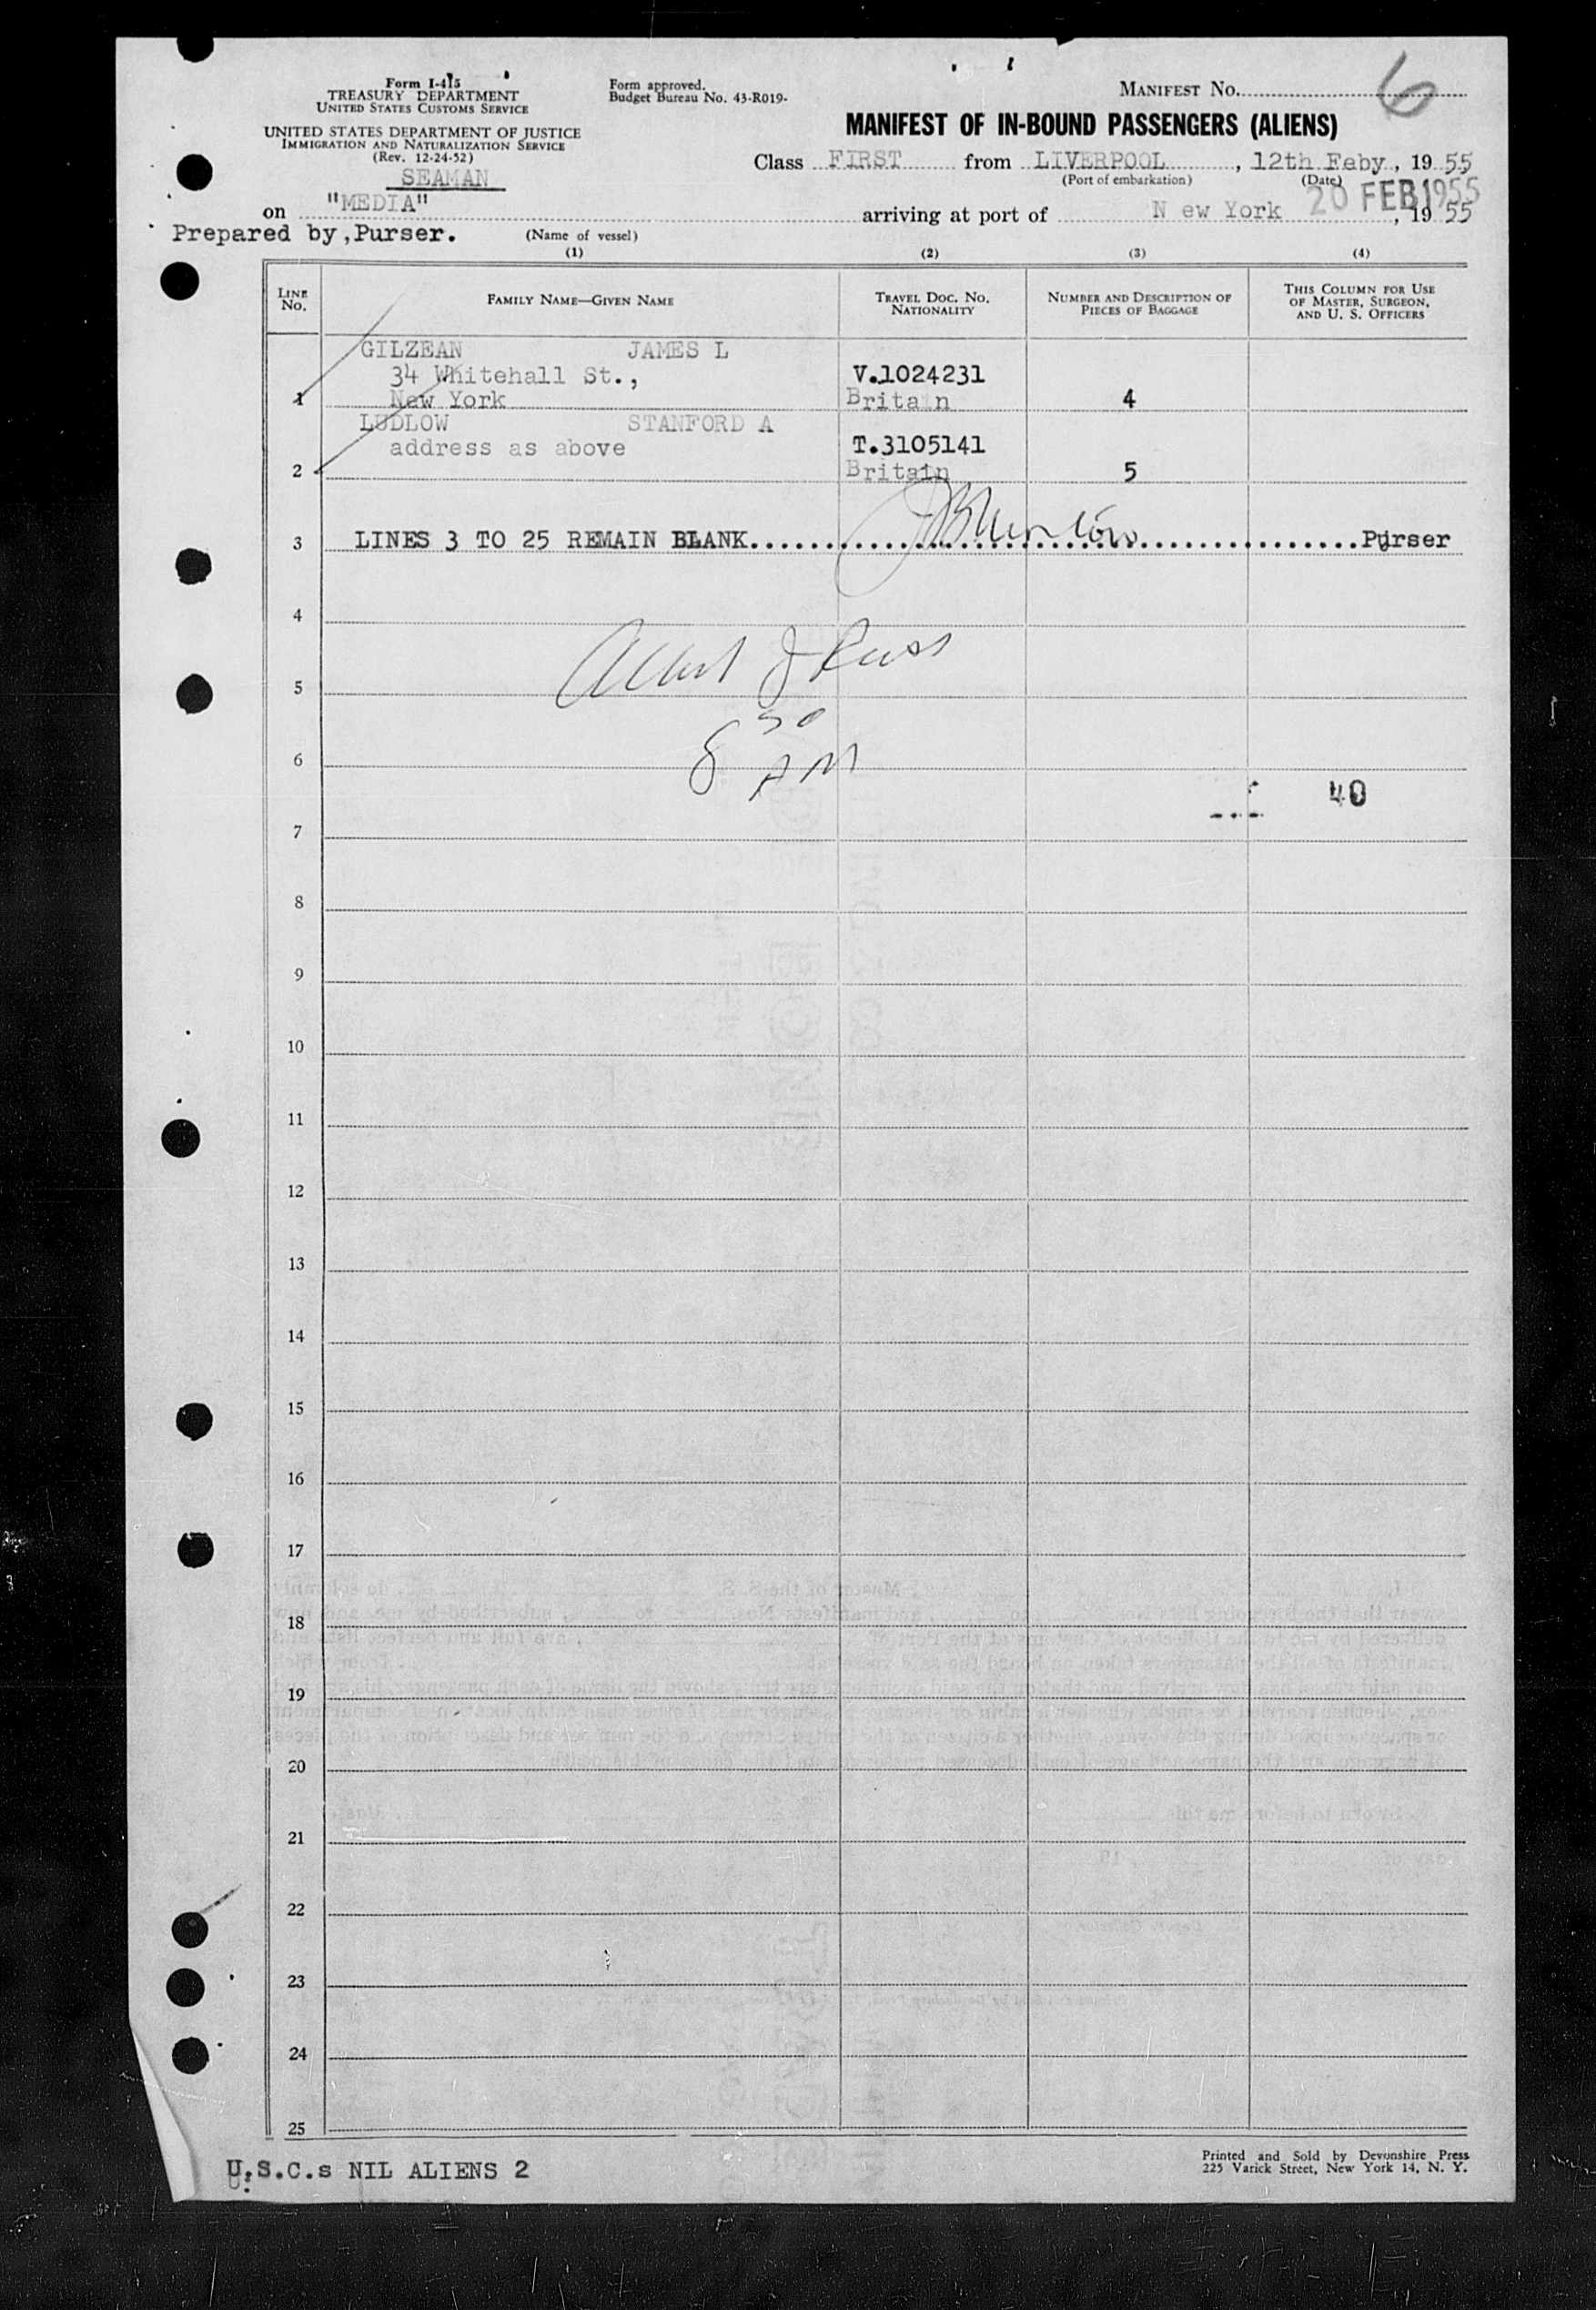 Form I-415
TREASURY DEPARTMENT
UNITED STATES CUSTOMS SERVICE
UNITED STATES DEPARTMENT OF JUSTICE
IMMIGRATION AND NATURALIZATION SERVICE
(Rev. 12-24-52)
SEAMAN
Form approved.
Budget Bureau No. 43-R019-
MANIFEST NO. 6
MANIFEST OF IN-BOUND PASSENGERS (ALIENS)
Class FIRST from LIVERPOOL, 12th Feby, 19 55
(Port of embarkation) (Date)
on "MEDIA" arriving at port of N ew York, 19 55
20 FEB 1955
Prepared by, Purser. (Name of vessel)
(1) (2) (3) (4)
LINE NO.
FAMILY NAME—GIVEN NAME
TRAVEL DOC. NO.
NATIONALITY
NUMBER AND DESCRIPTION OF
PIECES OF BAGGAGE
THIS COLUMN FOR USE
OF MASTER, SURGEON,
AND U. S. OFFICERS
GILZEAN JAMES L
34 Whitehall St., V.1024231
1 New York Britain 4
LUDLOW STANFORD A
address as above T.3105141
2 Britain 5
3 LINES 3 TO 25 REMAIN BLANK. Purser
4
5
8 30
6 AM
40
7
8
9
10
11
12
13
14
15
16
17
18
19
20
21
22
23
24
25
U.S.C.s NIL ALIENS 2
Printed and Sold by Devonshire Press
225 Varick Street, New York 14, N. Y.